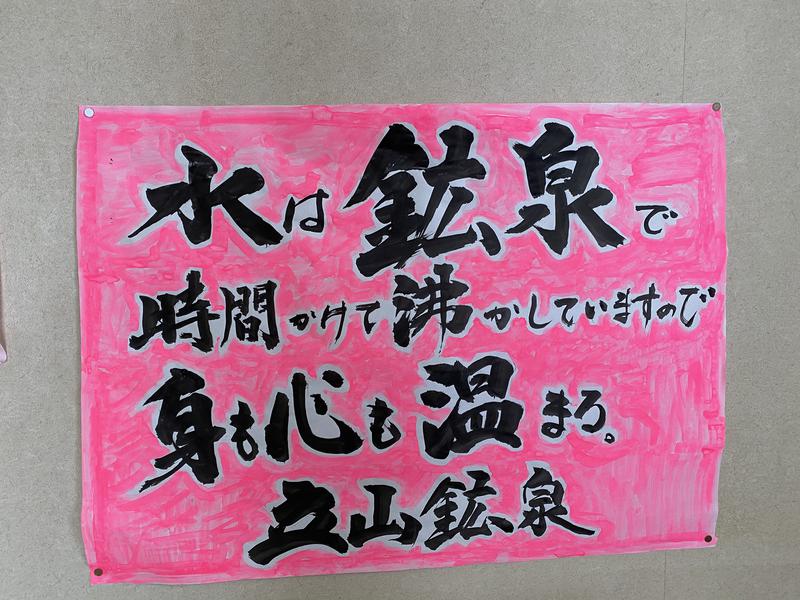 水は鉱泉で
時間かけて沸かしていますので
身も心も温まろ。
立山鉱泉